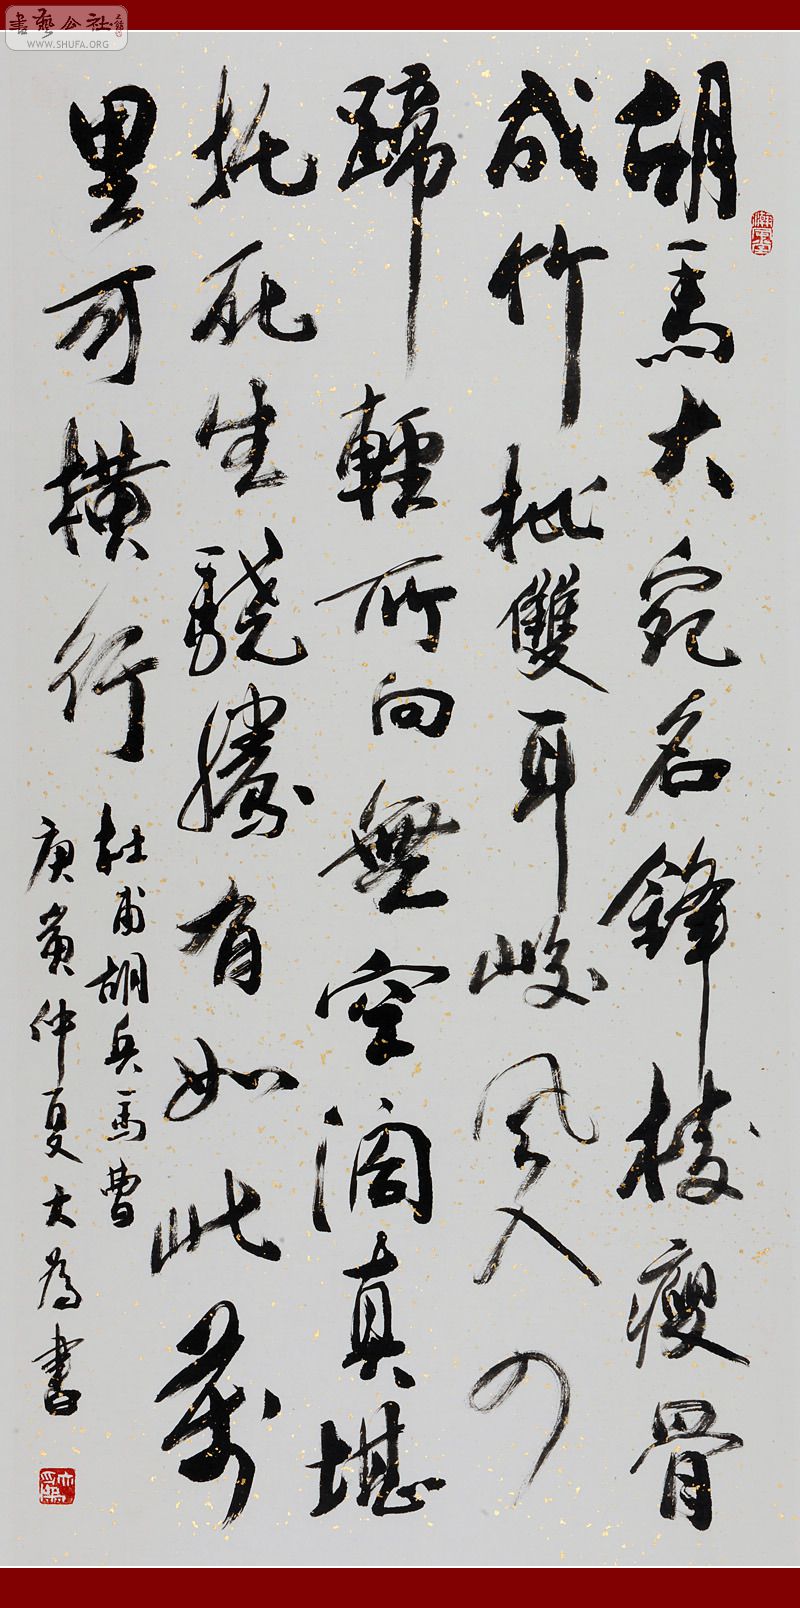 書藝公社
WWW.SHUFA.ORG
胡馬大宛名鋒棱瘦骨
成竹批雙耳峻風入四
蹄輕所向無空闊真堪
托死生驍騰有如此萬
里可橫行
杜甫胡兵馬曹
庚寅仲夏大為書